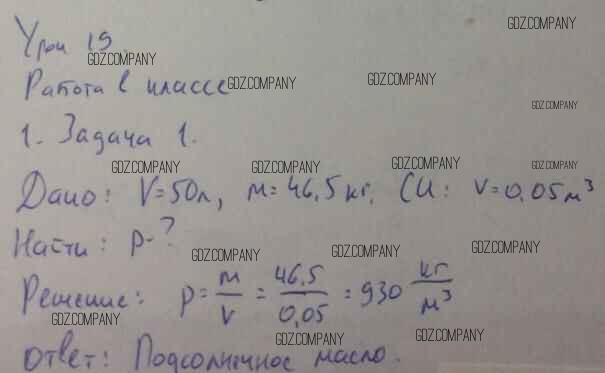 GDZ.COMPANY
Урок 19.
GDZ.COMPANY
Работа в классе
GDZ.COMPANY
GDZ.COMPANY
GDZ.COMPANY
1. Задача 1.
GDZ.COMPANY
GDZ.COMPANY
GDZ.COMPANY
GDZ.COMPANY
Дано: V=50л, m=46,5 кг. СИ: V=0,05 м³
Найти: p-?
GDZ.COMPANY
GDZ.COMPANY
GDZ.COMPANY
Решение: p = m/V = 46,5/0,05 = 930 кг/м³
GDZ.COMPANY
GDZ.COMPANY
GDZ.COMPANY
Ответ: Подсолнечное масло.